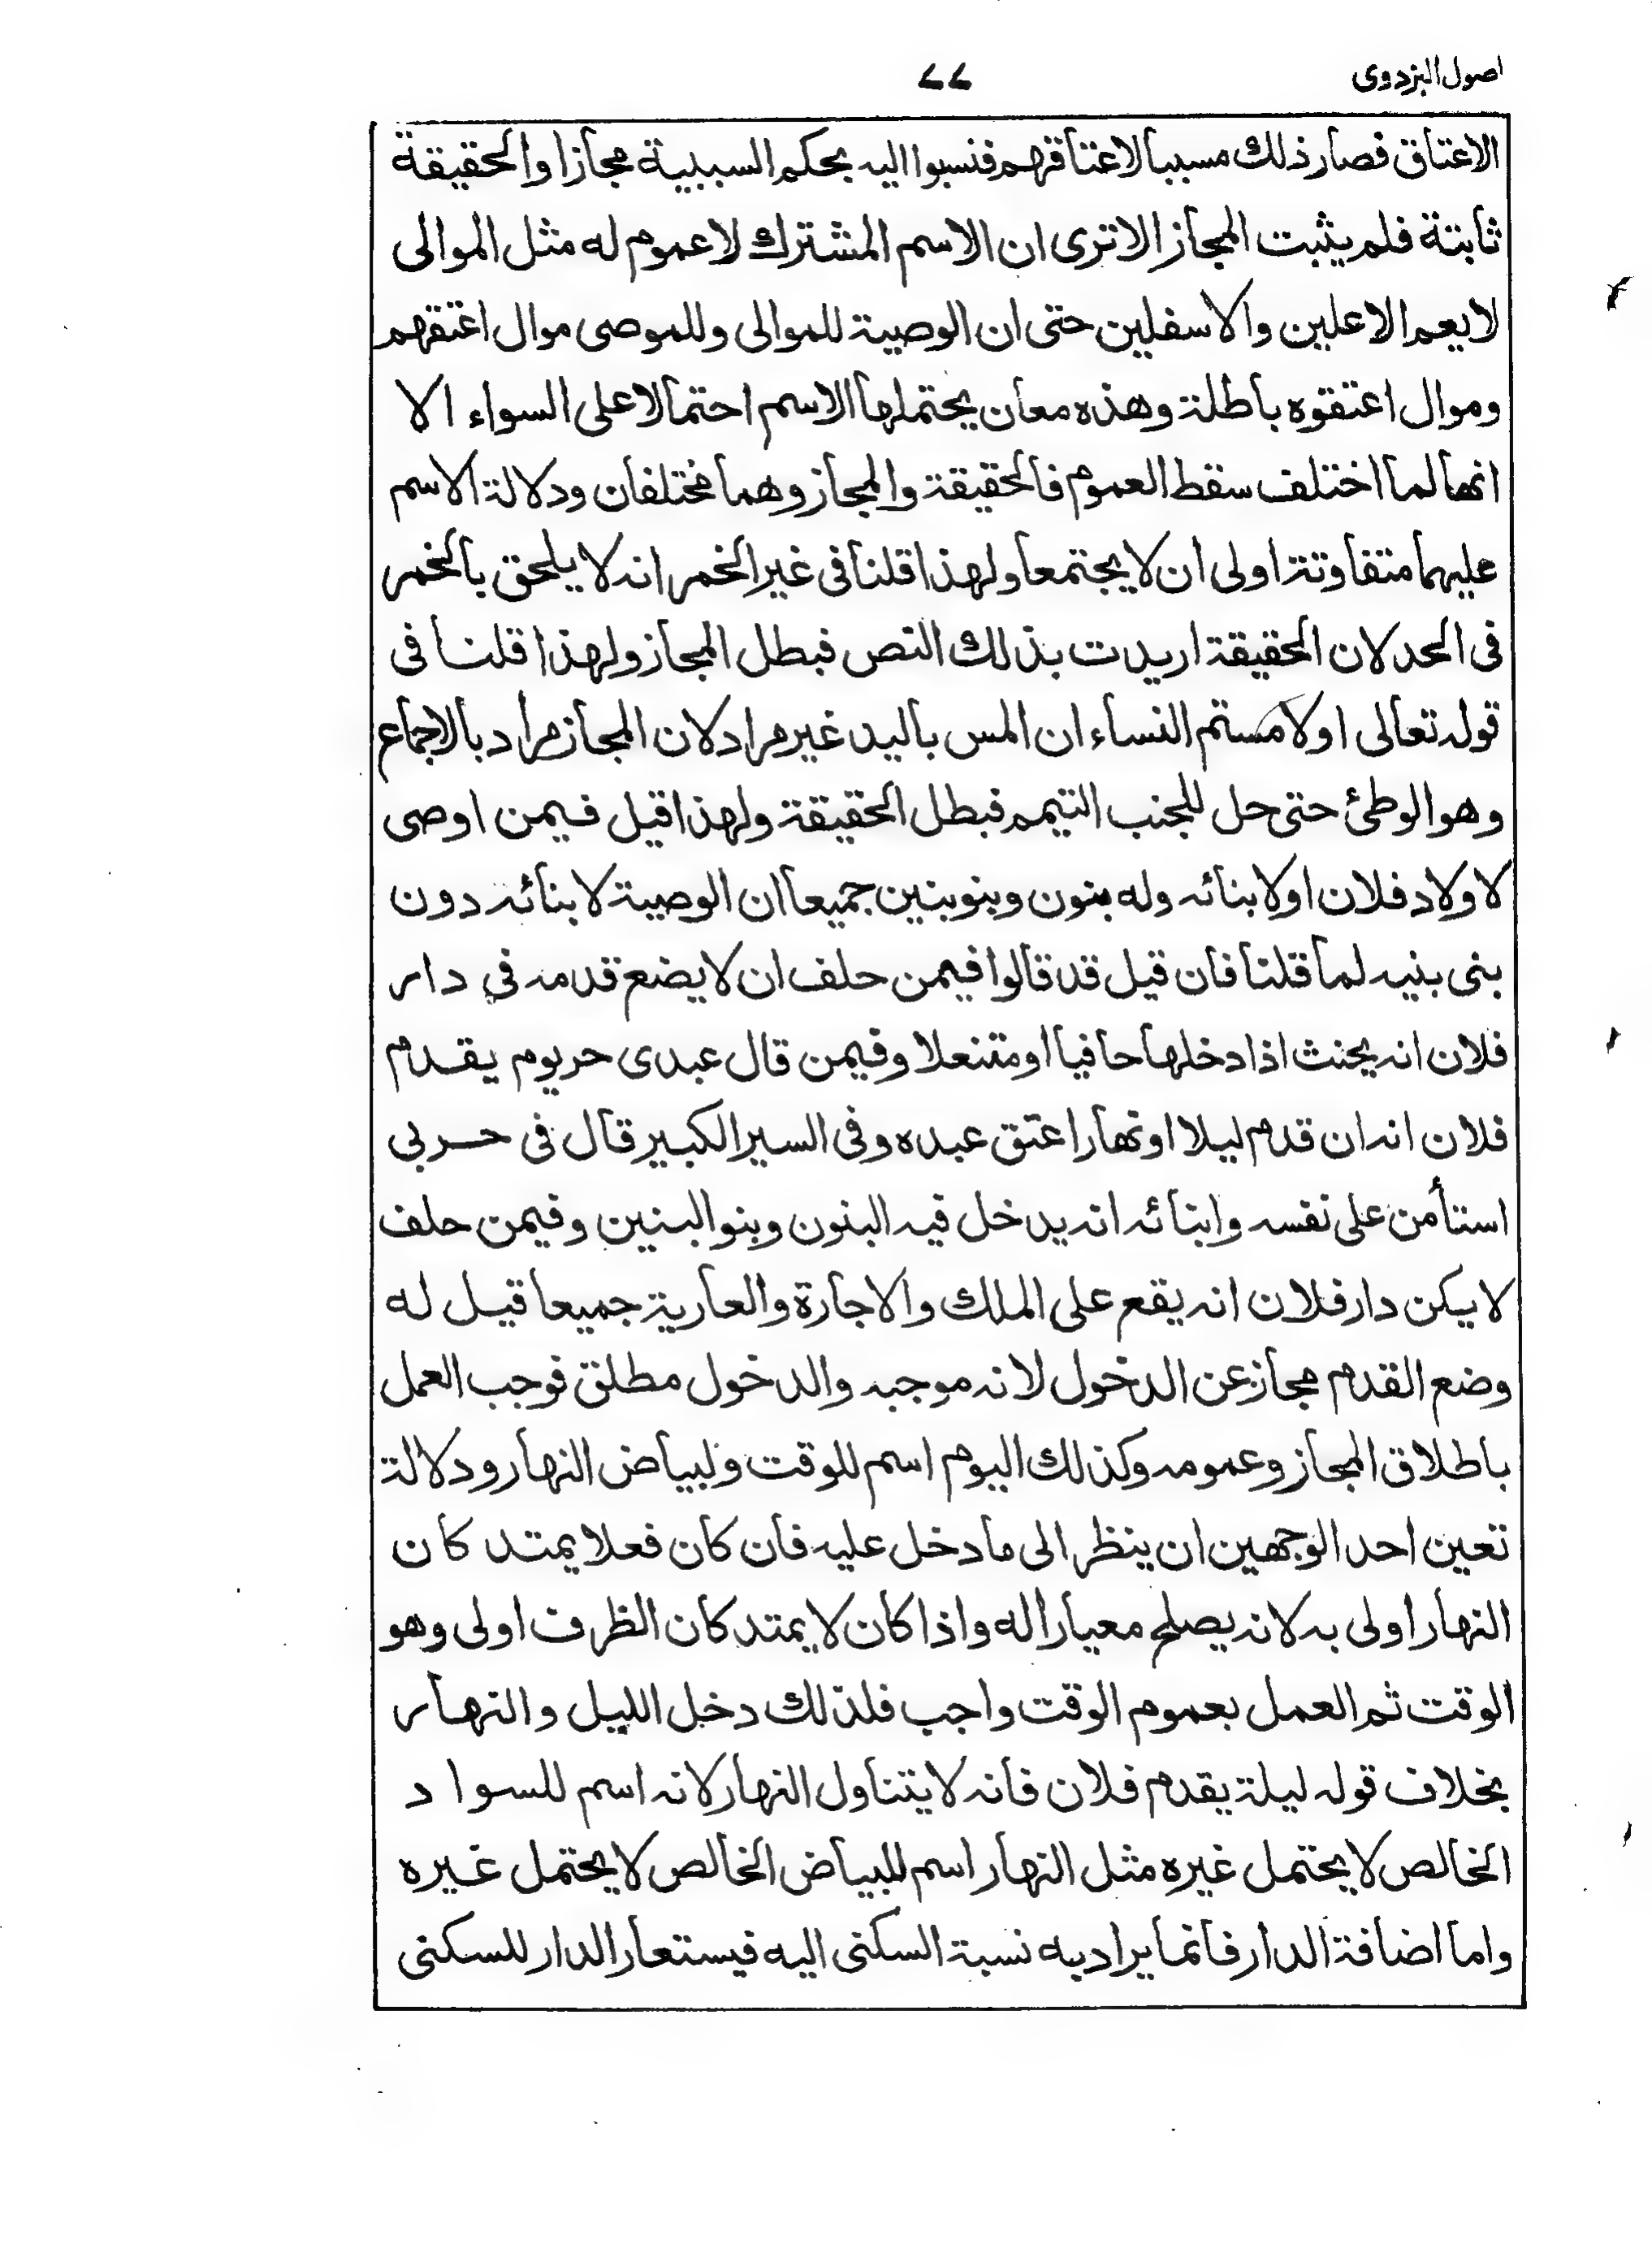 اصول البزدوى
۷۷
الاعتاق فصار ذلك مسببا لاعتاقهم فنسبوا اليه بحكم السببية مجازا والحقيقة
ثابتة فلم يثبت المجاز الا ترى ان الاسم المشترك لا عموم له مثل الموالى
لا يعم الاعلين والاسفلين حتى ان الوصية للموالى وللموصى موال اعتقهم
وموال اعتقوه باطلة وهذه معان يحتملها الاسم احتمالا على السواء الا
انها لما اختلف سقط العموم فالحقيقة والمجاز وهما مختلفان ودلالة الاسم
عليهما متفاوتة اولى ان لا يجتمعا ولهذا قلنا فى غير الخمر انه لا يلحق بالخمر
فى الحد لان الحقيقة اريدت بذلك النص فبطل المجاز ولهذا قلنا فى
قوله تعالى او لامستم النساء ان المس باليد غير مراد لان المجاز مراد بالاجماع
وهو الوطئ حتى حل للجنب التيمم فبطل الحقيقة ولهذا قيل فيمن اوصى
لاولاد فلان او لابنائه وله بنون وبنو بنين جميعا ان الوصية لابنائه دون
بنى بنيه لما قلنا فان قيل قد قالوا فيمن حلف ان لا يضع قدمه في دار
فلان انه يحنث اذا دخلها حافيا او متنعلا وفيمن قال عبدى حر يوم يقدم
فلان انه ان قدم ليلا او نهارا عتق عبده وفى السير الكبير قال فى حربي
استأمن على نفسه وابنائه انه يدخل فيه البنون وبنو البنين وفيمن حلف
لا يسكن دار فلان انه يقع على الملك والاجارة والعارية جميعا قيل له
وضع القدم مجاز عن الدخول لانه موجبه والدخول مطلق فوجب العمل
باطلاق المجاز وعمومه وكذلك اليوم اسم للوقت ولبياض النهار ودلالة
تعين احد الوجهين ان ينظر الى ما دخل عليه فان كان فعلا يمتد كان
النهار اولى به لانه يصلح معيارا له واذا كان لا يمتد كان الظرف اولى وهو
الوقت ثم العمل بعموم الوقت واجب فلذلك دخل الليل والنهار
بخلاف قوله ليلة يقدم فلان فانه لا يتناول النهار لانه اسم للسواد
الخالص لا يحتمل غيره مثل النهار اسم للبياض الخالص لا يحتمل غيره
واما اضافة الدار فانما يراد به نسبة السكنى اليه فيستعار الدار للسكنى